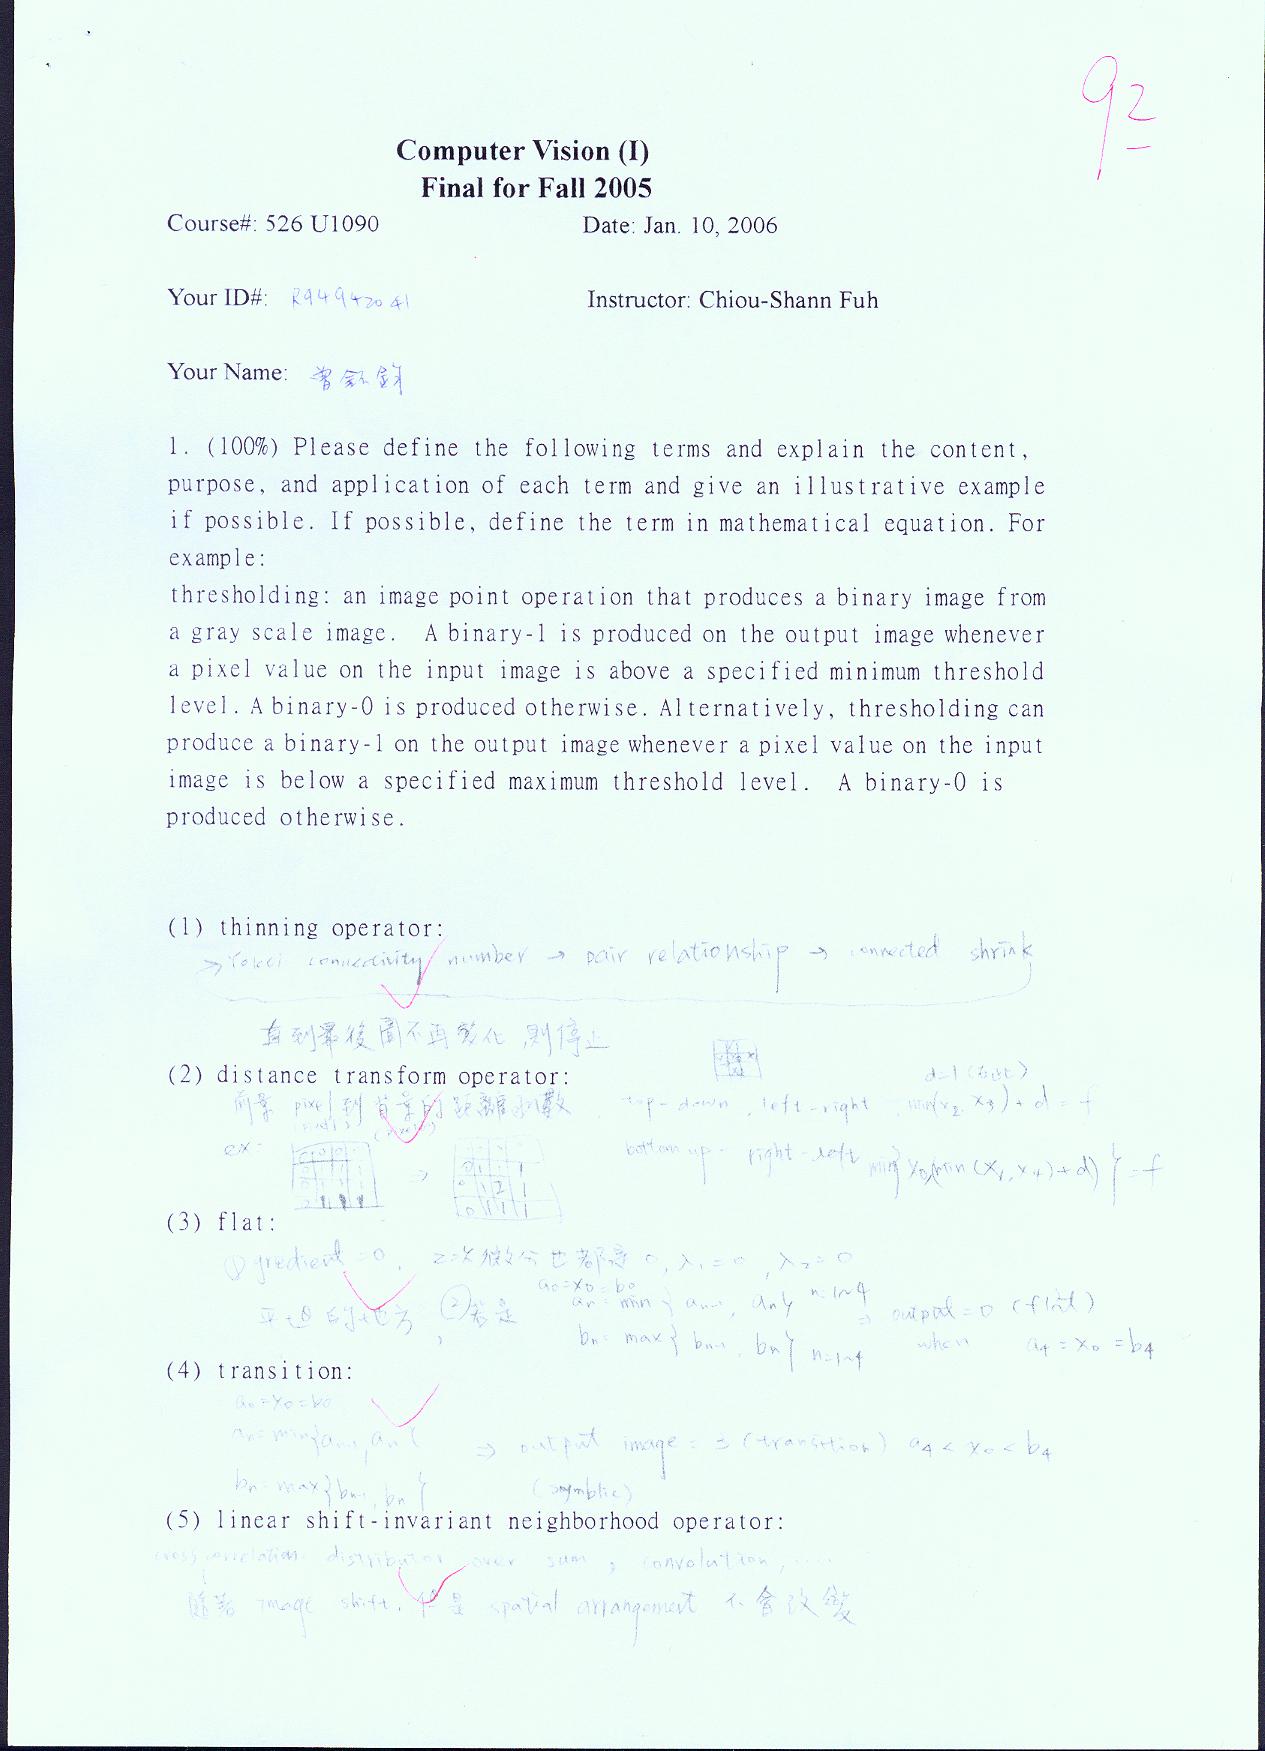 92
Computer Vision (I)
Final for Fall 2005
Course#: 526 U1090 Date: Jan. 10, 2006
Your ID#: R94942041 Instructor: Chiou-Shann Fuh
Your Name: 曾
1. (100%) Please define the following terms and explain the content,
purpose, and application of each term and give an illustrative example
if possible. If possible, define the term in mathematical equation. For
example:
thresholding: an image point operation that produces a binary image from
a gray scale image. A binary-1 is produced on the output image whenever
a pixel value on the input image is above a specified minimum threshold
level. A binary-0 is produced otherwise. Alternatively, thresholding can
produce a binary-1 on the output image whenever a pixel value on the input
image is below a specified maximum threshold level. A binary-0 is
produced otherwise.
(1) thinning operator:
→ Yokoi connectivity number → pair relationship → connected shrink
直到最後圖不再變化,則停止
(2) distance transform operator:
前景 pixel 到背景的距離 top-down, left-right min(x2, x3)+d = f
d=1
ex: ⇒ bottom up - right-left min{x0, min(x1, x4)+d} = f
(3) flat:
① gredient = 0, 二次微分也都是 0, λ1=0, λ2=0
a0=x0=b0
② 若是 an = min{an-1, an} n=1~4 ⇒ output=0 (flat)
bn = max{bn-1, bn} n=1~4 when a4=x0=b4
(4) transition:
a0=x0=b0
an=min{an-1, an} ⇒ output image = 3 (transition) a4<x0<b4
bn=max{bn-1, bn} (symblic)
(5) linear shift-invariant neighborhood operator:
cross correlation distributor over sum, convolution, ......
隨著 image shift, 但是 spatial arrangement 不會改變